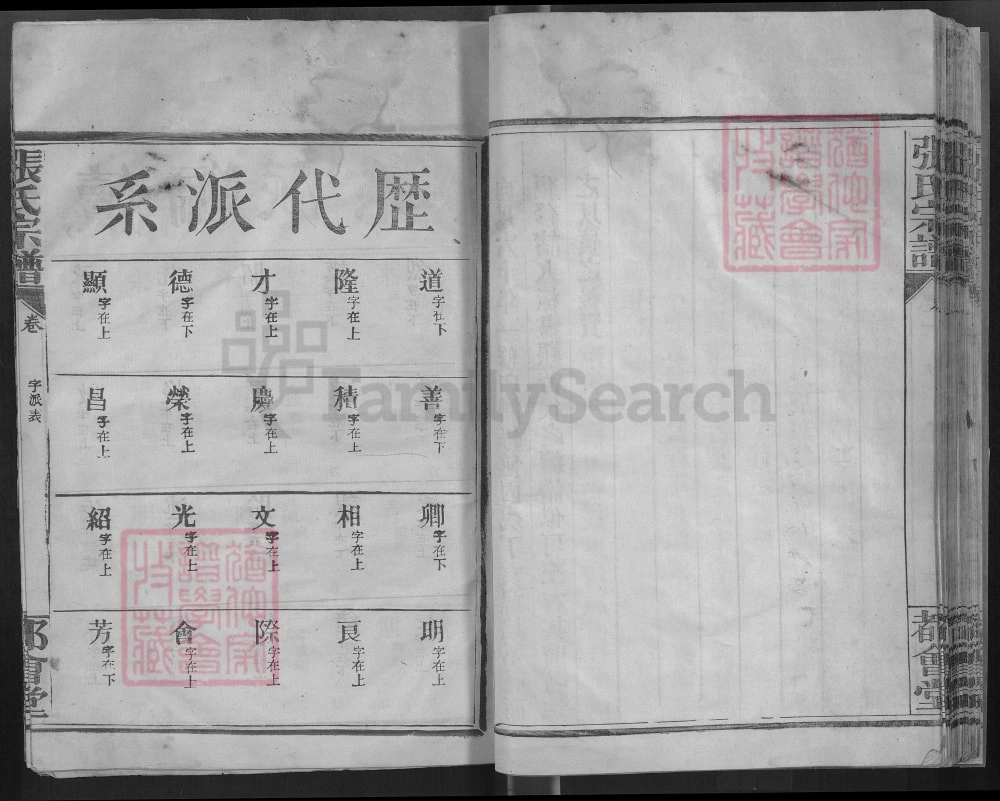 歷代派系
道字在下
隆字在上
才字在上
德字在下
顯字在上
善字在下
積字在上
慶字在上
榮字在上
昌字在上
卿字在下
相字在上
文字在上
光字在上
紹字在上
明字在上
良字在上
際字在上
會字在上
芳字在下
張氏宗譜
卷
字派表
都會堂
張氏宗譜
都會堂
譜學會
收藏
譜學會
收藏
FamilySearch